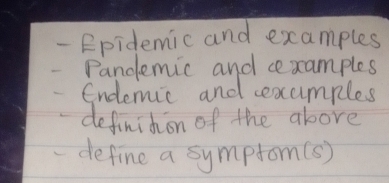 - Epidemic and examples
- Pandemic and examples
- Endemic and examples
- definition of the above
- define a symptom(s)